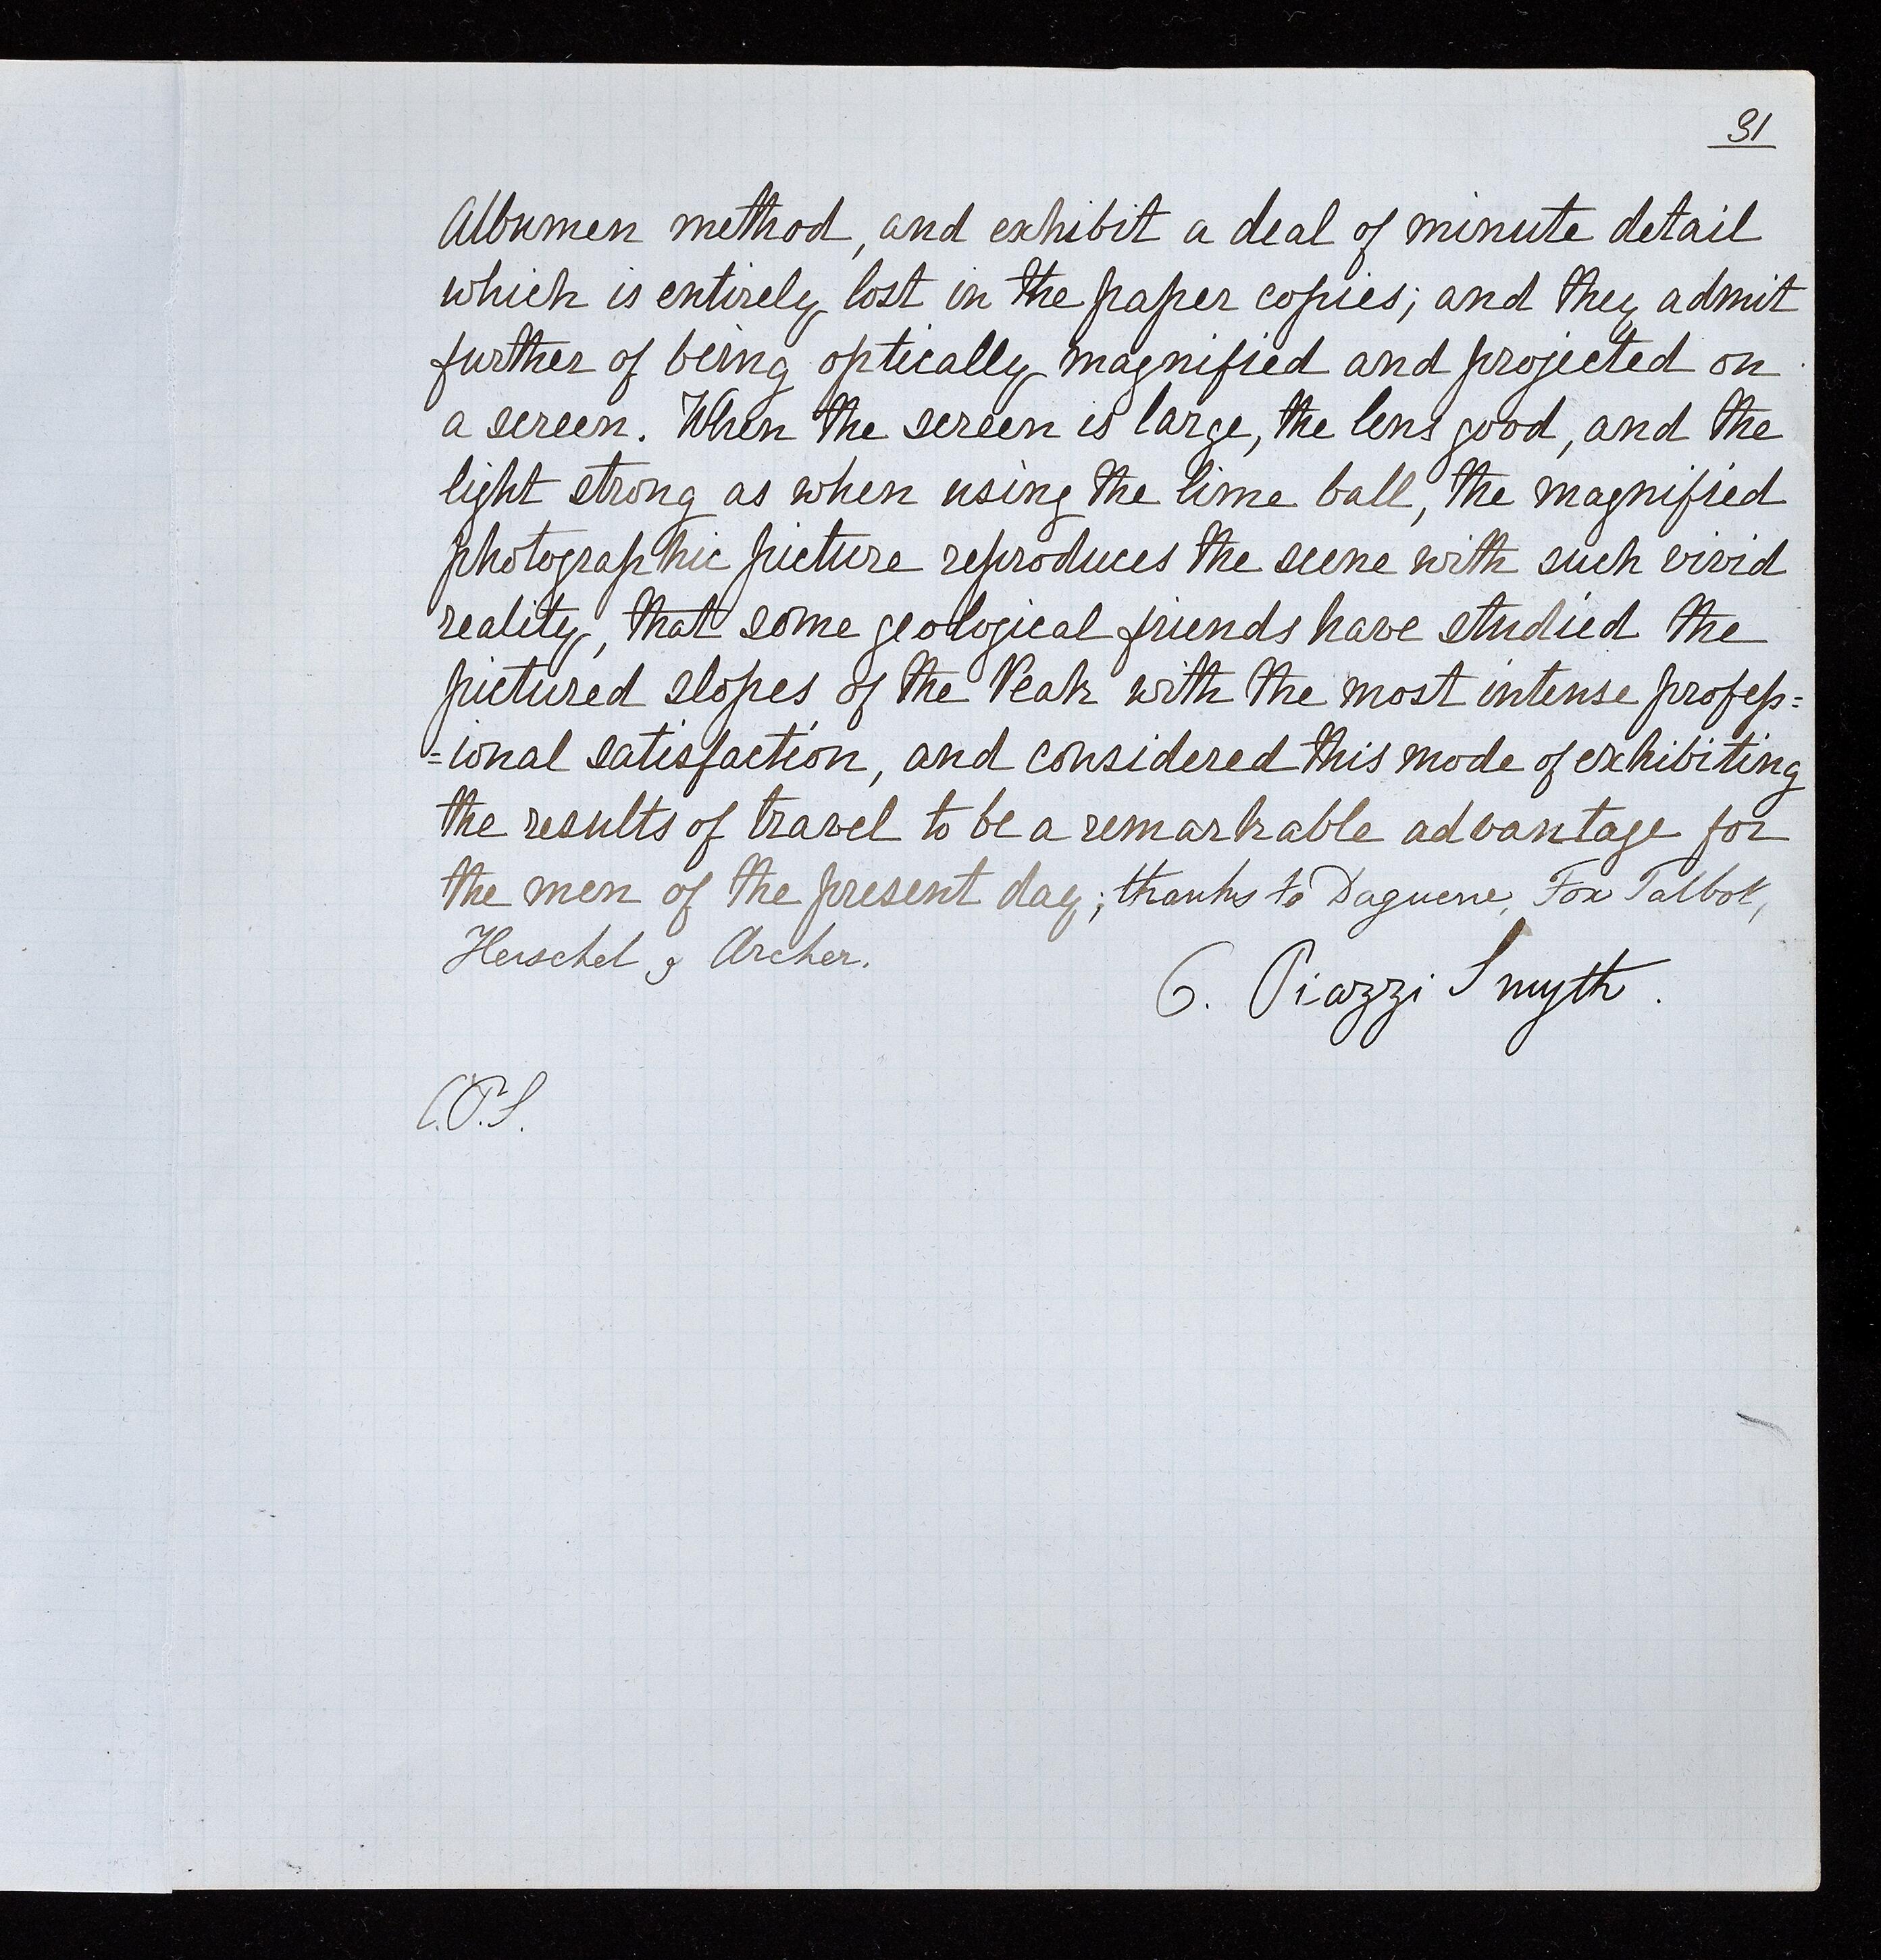 31
Albumen method, and exhibit a deal of minute detail
which is entirely lost in the paper copies; and they admit
further of being optically magnified and projected on
a screen. When the screen is large, the lens good, and the
light strong as when using the lime ball, the magnified
photographic picture reproduces the scene with such vivid
reality, that some geological friends have studied the
pictured slopes of the Peak with the most intense profess=
=ional satisfaction, and considered this mode of exhibiting
the results of travel to be a remarkable advantage for
the men of the present day; thanks to Daguerre, Fox Talbot,
Herschel & Archer.
C. Piazzi Smyth.
C.P.S.